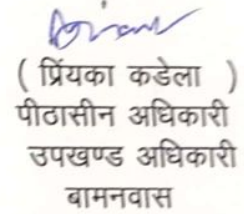 ( प्रिंयका कडेला )
पीठासीन अधिकारी
उपखण्ड अधिकारी
बामनवास